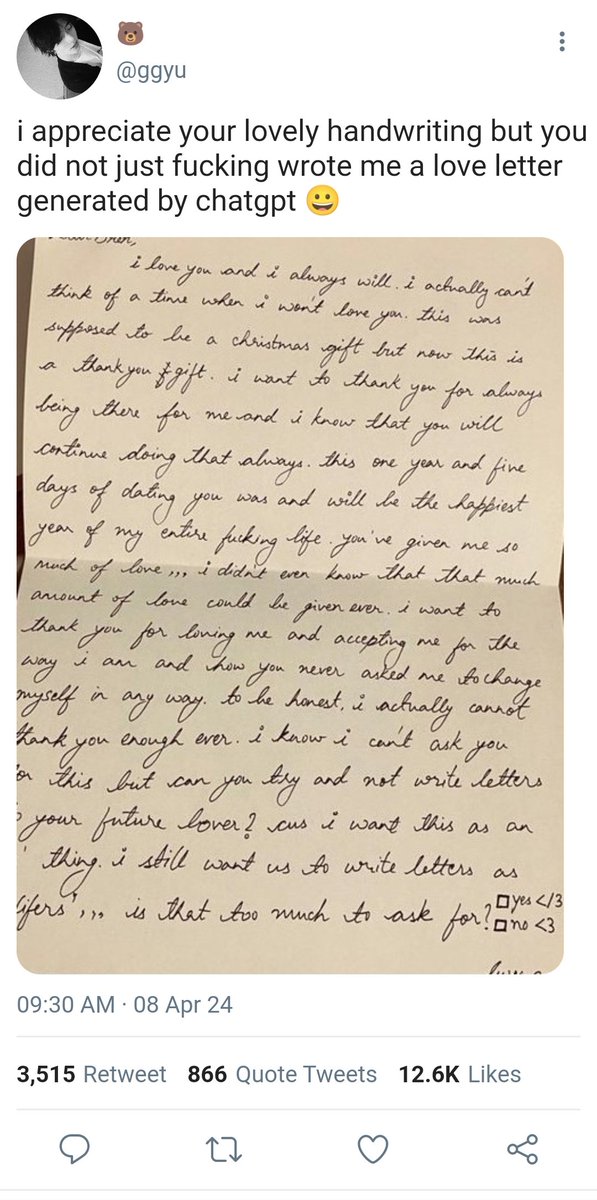 🐻
@ggyu
i appreciate your lovely handwriting but you
did not just fucking wrote me a love letter
generated by chatgpt 😀
i love you and i always will. i actually can't
think of a time when i won't love you. this was
supposed to be a christmas gift but now this is
a thankyou gift. i want to thank you for always
being there for me and i know that you will
continue doing that always. this one year and five
days of dating you was and will be the happiest
year of my entire fucking life. you've given me so
much of love ,,, i didn't even know that that much
amount of love could be given ever. i want to
thank you for loving me and accepting me for the
way i am and how you never asked me to change
myself in any way. to be honest, i actually cannot
thank you enough ever. i know i can't ask you
this but can you try and not write letters
your future lover? cus i want this as an
thing. i still want us to write letters as
lifers' ,,, is that too much to ask for? □yes </3
□no <3
09:30 AM · 08 Apr 24
3,515 Retweet 866 Quote Tweets 12.6K Likes